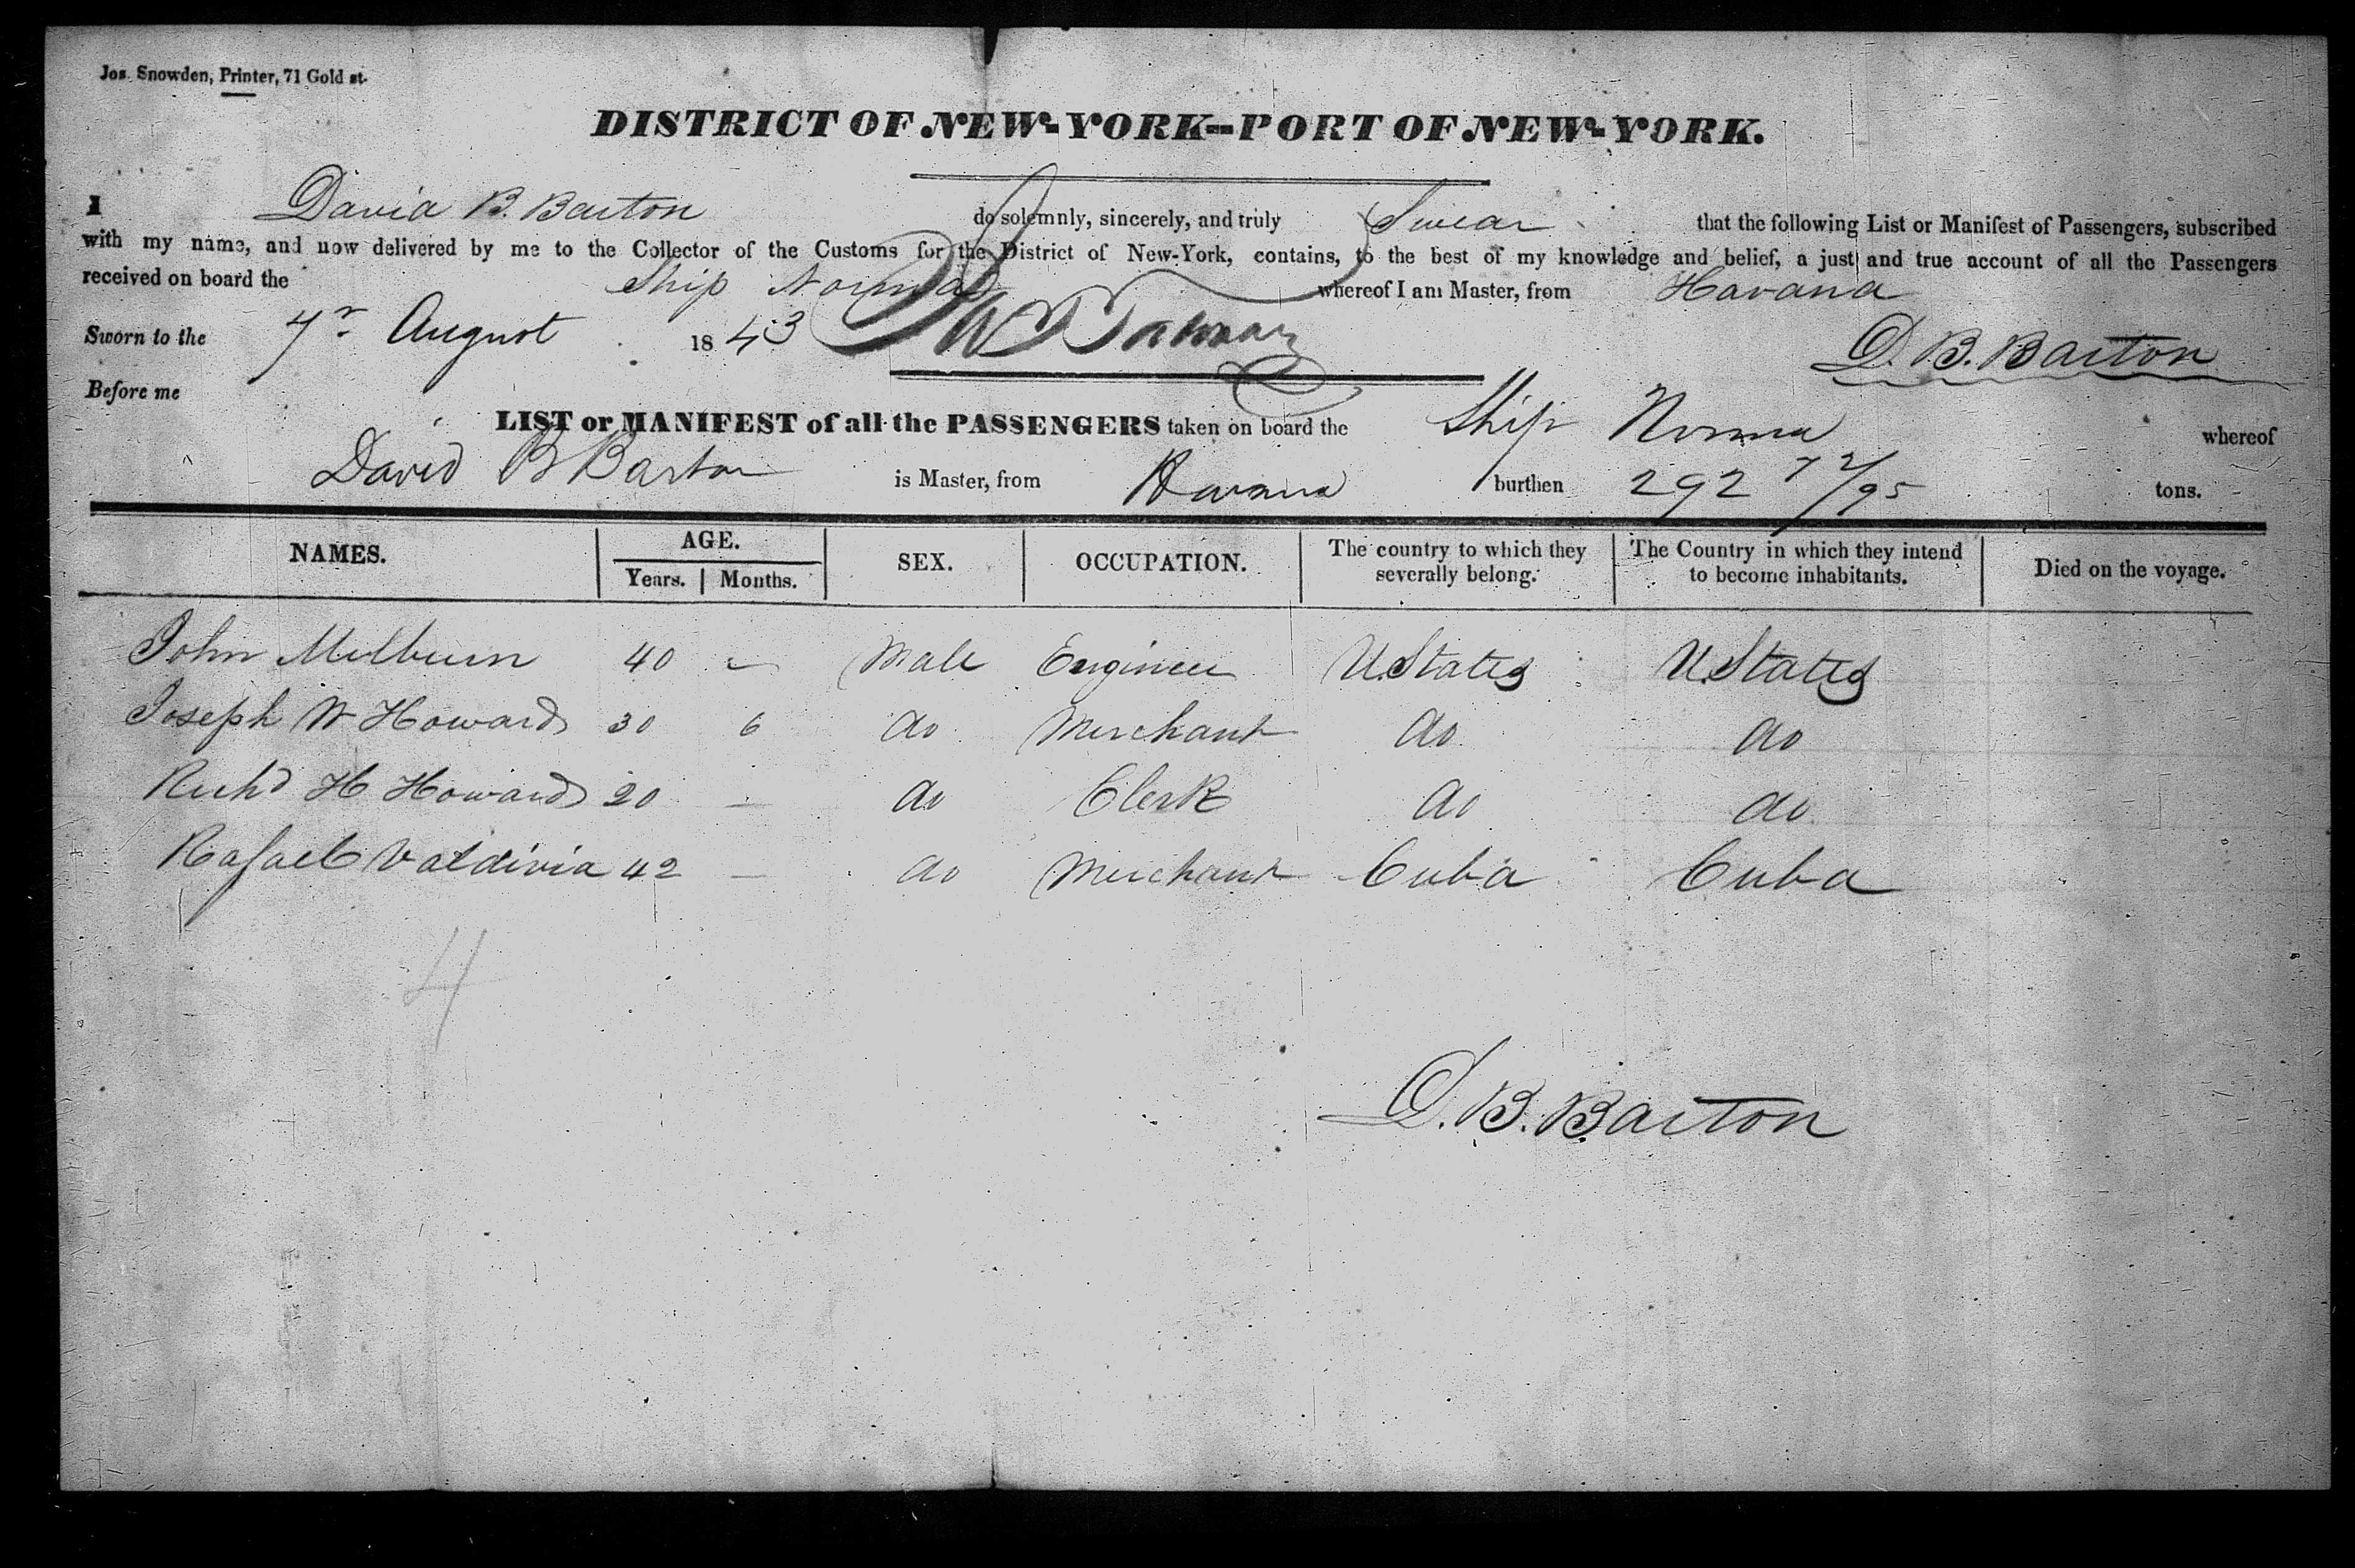 Jos. Snowden, Printer, 71 Gold st.
DISTRICT OF NEW-YORK--PORT OF NEW-YORK.
I David B. Barton do solemnly, sincerely, and truly Swear that the following List or Manifest of Passengers, subscribed
with my name, and now delivered by me to the Collector of the Customs for the District of New-York, contains, to the best of my knowledge and belief, a just and true account of all the Passengers
received on board the Ship Norma whereof I am Master, from Havana
Sworn to the 7 August 1843
D. B. Barton
Before me
LIST or MANIFEST of all the PASSENGERS taken on board the Ship Norma whereof
David B Barton is Master, from Havana burthen 292 72/95 tons.
NAMES. AGE. Years. Months. SEX. OCCUPATION. The country to which they severally belong. The Country in which they intend to become inhabitants. Died on the voyage.
John Milburn 40 – Male Engineer U.States U.States
Joseph W Howard 30 6 do Merchant do do
Richd H Howard 20 – do Clerk do do
Rafael Valdivia 42 – do Merchant Cuba Cuba
4
D. B. Barton